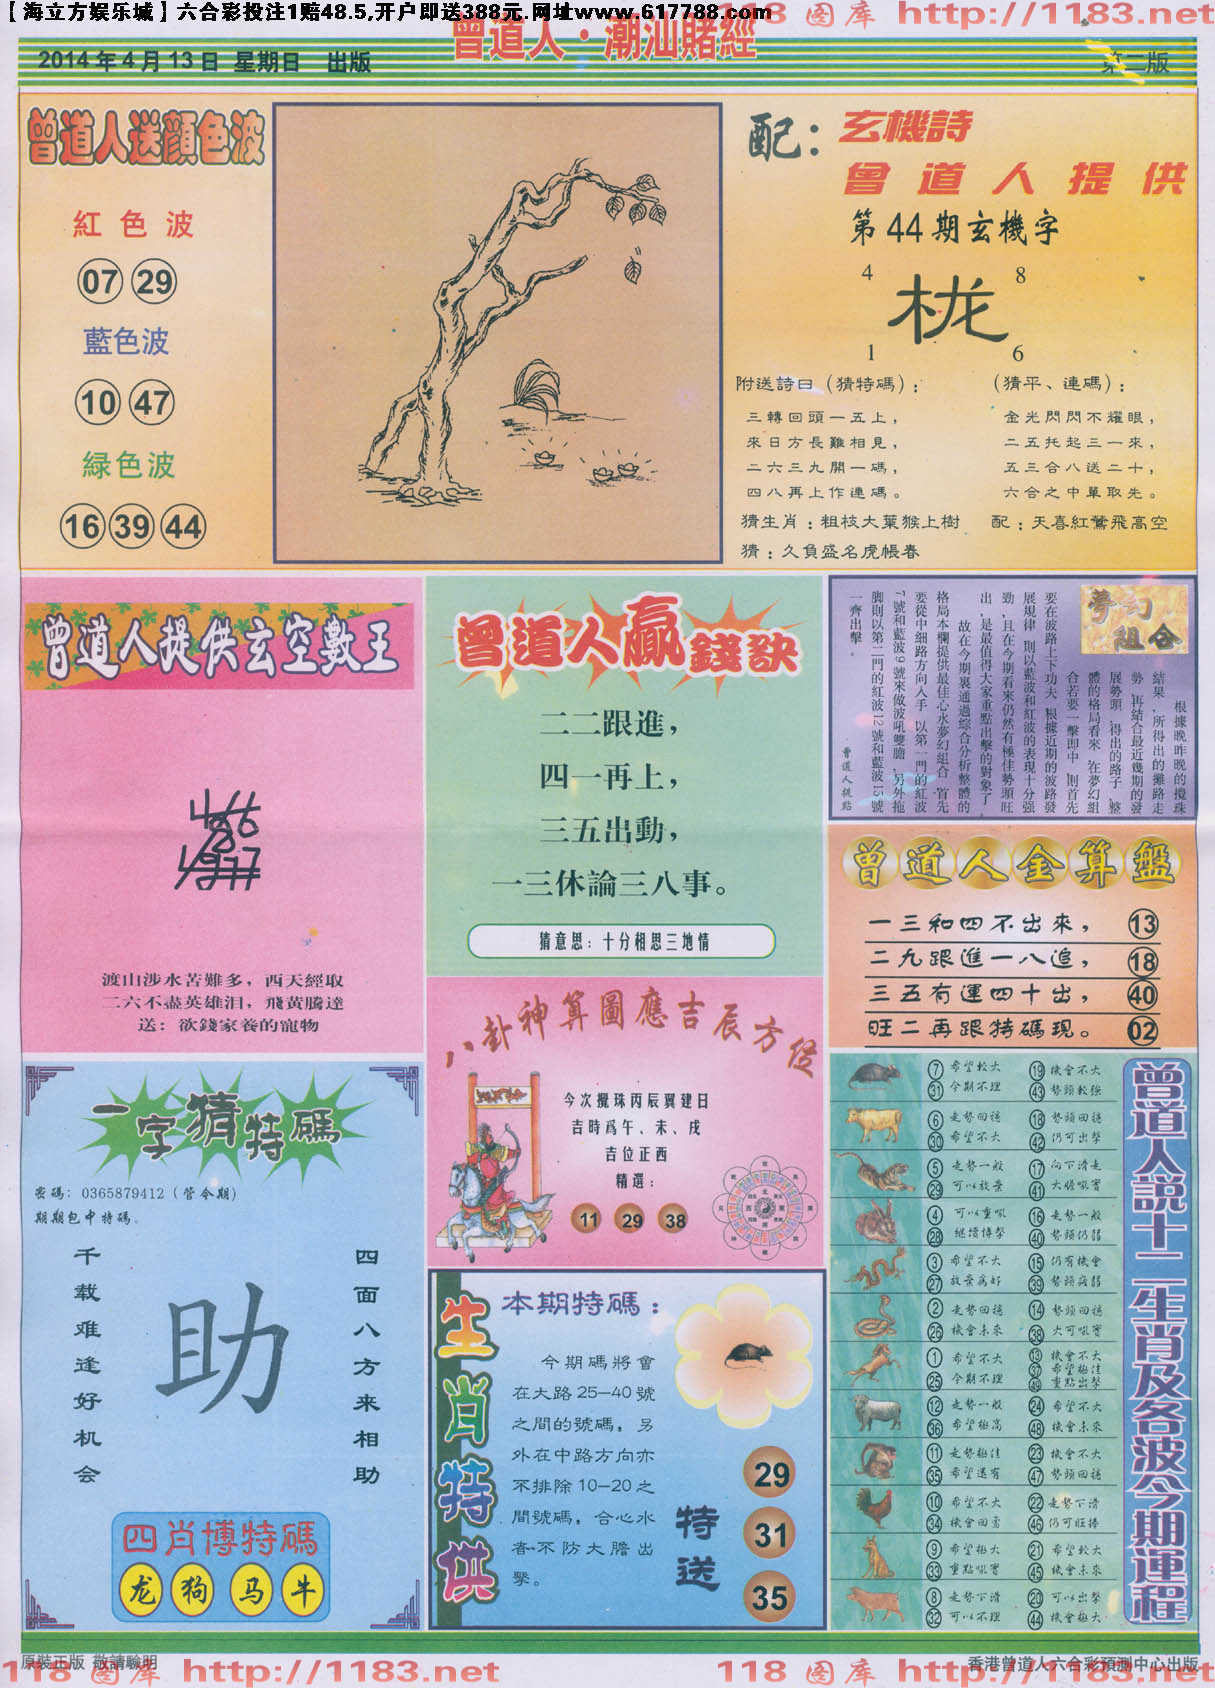 【海立方娱乐城】六合彩投注1赔48.5,开户即送388元.网址www.617788.com
118 图库 http://1183.net
曾道人·潮汕賭經
2014年4月13日 星期日 出版
第二版
曾道人送顏色波
紅色波
07 29
藍色波
10 47
緑色波
16 39 44
配：玄機詩
曾道人提供
第44期玄機字
4 8
栊
1 6
附送詩曰（猜特碼）：
三轉回頭一五上，
來日方長難相見，
二六三九開一碼，
四八再上作連碼。
（猜平、連碼）：
金光閃閃不耀眼，
二五托起三一來，
五三合八送二十，
六合之中單取先。
猜生肖：粗枝大葉猴上樹
配：天喜紅鸞飛高空
猜：久負盛名虎帳春
曾道人提供玄空數王
渡山涉水苦難多，西天經取
二六不盡英雄泪，飛黃騰達
送：欲錢家養的寵物
曾道人贏錢訣
二二跟進，
四一再上，
三五出動，
一三休論三八事。
猜意思：十分相思三地情
夢幻組合
根據晚昨晚的攪珠
結果，所得出的攤路走
勢，再結合最近幾期的發
展勢頭，得出的路子，整
體的格局看來，在夢幻組
合若要一擊即中，則首先
要在波路上下功夫，根據近期的波路發
展規律，則以藍波和紅波的表現十分强
勁，且在今期看來仍然有極佳勢頭旺
出，是最值得大家重點出擊的對象了，
故在今期裏通過綜合分析整體的
格局本欄提供最佳心水夢幻組合，首先
要從中細路方向入手，以第一門的紅波
7號和藍波9號來做波吼雙膽，另外拖
脚則以第二門的紅波12號和藍波15號
一齊出擊。
曾道人提點
曾道人金算盤
一三和四不出來， 13
二九跟進一八追， 18
三五有運四十出， 40
旺二再跟特碼現。 02
八卦神算圖應吉辰方位
今次攪珠丙辰翼建日
吉時爲午、未、戌
吉位正西
精選：
11 29 38
一字猜特碼
密碼：0365879412（管今期）
期期包中特碼。
千载难逢好机会
助
四面八方来相助
四肖博特碼
龙 狗 马 牛
生肖特供
本期特碼：
今期碼將會
在大路25—40號
之間的號碼，另
外在中路方向亦
不排除10—20之
間號碼，合心水
者不防大膽出
擊。
特送
29
31
35
曾道人説十二生肖及各波今期運程
7 希望較大 19 機會不大
31 今期不理 43 勢頭較強
6 走勢回穩 18 勢頭回穩
30 希望不大 42 仍可出擊
5 走勢一般 17 向下滑走
29 可以放棄 41 大膽吼實
4 可以重吼 16 走勢一般
28 繼續博擊 40 勢頭仍弱
3 希望不大 15 仍有機會
27 放棄爲好 39 勢頭疲弱
2 走勢回穩 14 勢頭回穩
26 機會未來 38 大可吼實
1 希望不大 13 機會不大
25 今期不理 37 希望極佳
49 重點出擊
12 走勢一般 24 希望不大
36 希望極高 48 機會未來
11 走勢極佳 23 機會不大
35 希望還有 47 勢頭回穩
10 希望不大 22 走勢下滑
34 機會回露 46 仍可旺捧
9 希望極大 21 希望較大
33 重點吼實 45 機會未來
8 走勢下滑 20 可以出擊
32 可以不理 44 機會極大
原裝正版 敬請驗明
香港曾道人六合彩預測中心出版
118 图库 http://1183.net
118 图库 http://1183.net